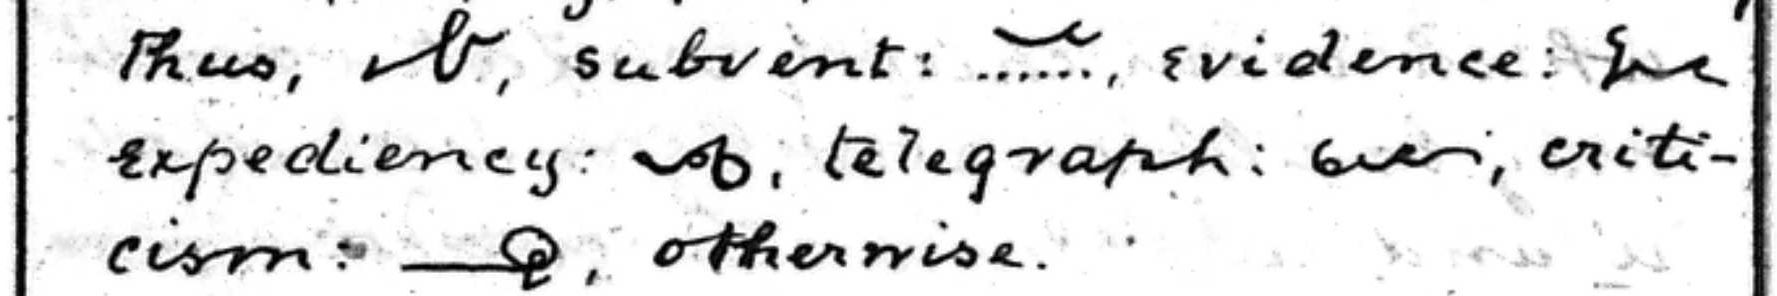 Thus, , subvent: ......, evidence:
expediency: , telegraph: , criti-
cism: , otherwise.